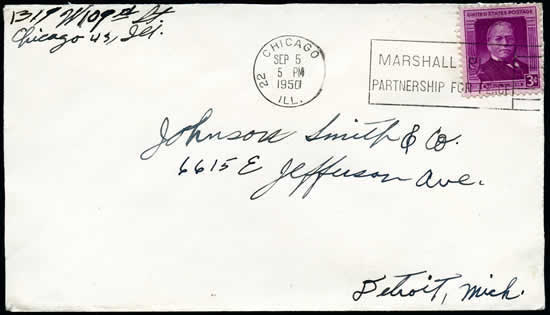 1319 W 109th St
Chicago 43, Ill.
CHICAGO
22
SEP 5
5 PM
1950
ILL.
MARSHALL
PARTNERSHIP FOR
UNITED STATES POSTAGE
3¢
Johnson Smith & Co.
6615 E Jefferson Ave.
Detroit, Mich.